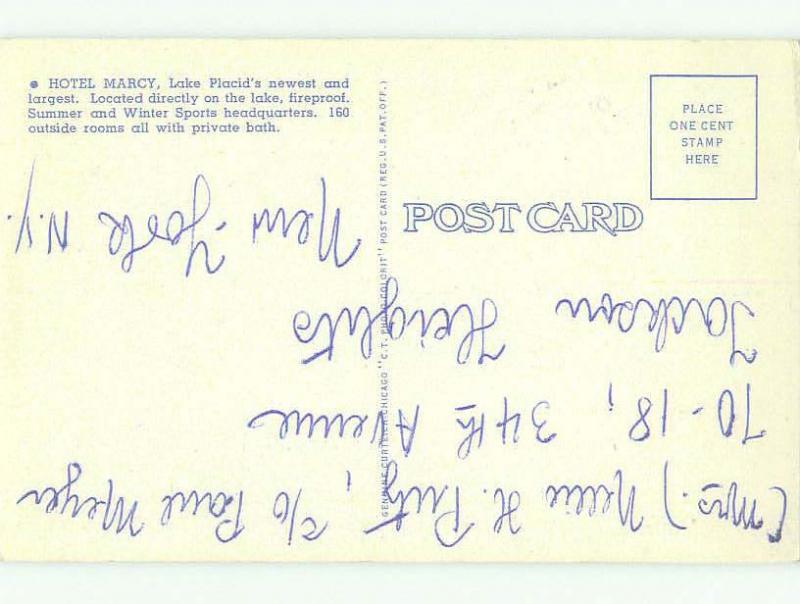 ● HOTEL MARCY, Lake Placid's newest and
largest. Located directly on the lake, fireproof.
Summer and Winter Sports headquarters. 160
outside rooms all with private bath.
PLACE
ONE CENT
STAMP
HERE
POST CARD
GENUINE CURTEICH-CHICAGO "C.T. PHOTO-COLORIT" POST CARD (REG. U.S. PAT. OFF.)
(Mrs.) Nellie H. c/o Paul Meyer
70-18, 34th Avenue
Jackson Heights
New-York N.Y.